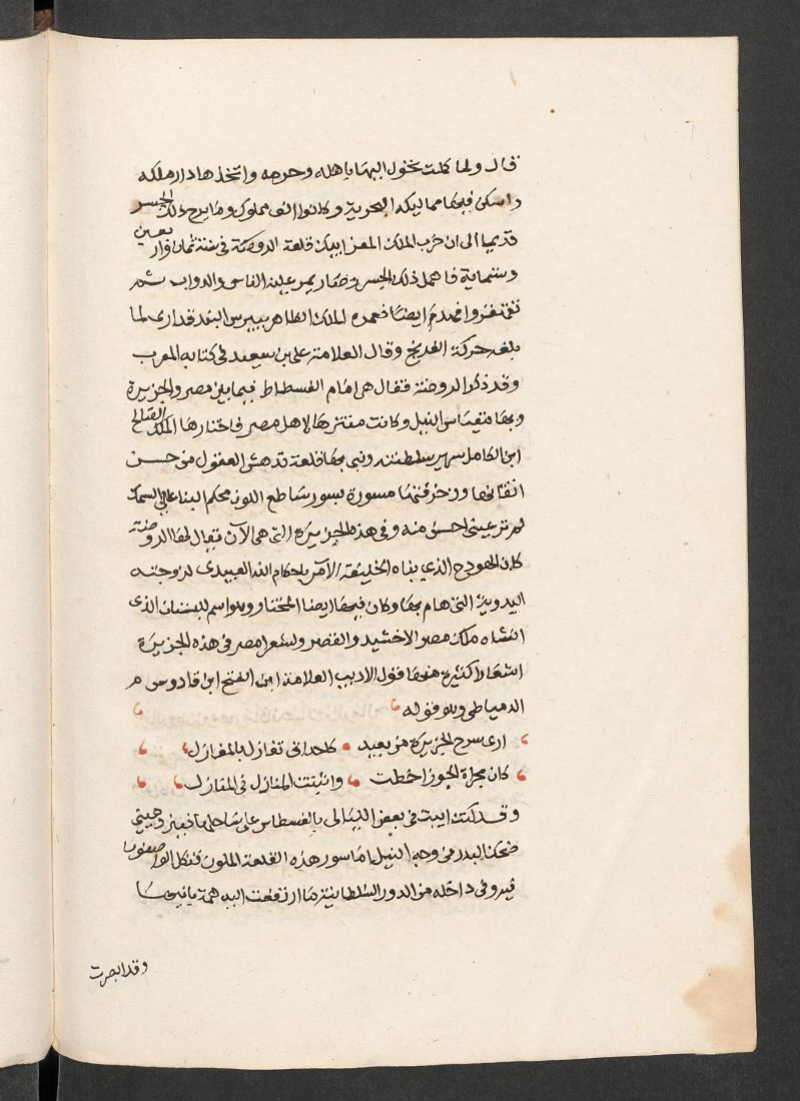 قال ولما كملت تحول اليها باهله وحرمه واتخذها دار ملكه
واسكن فيها مماليكه البحرية وكانوا الف مملوك وما برح ذلك الجسر
قديما الى ان خرب الملك المعز ايبك قلعة الروضة في سنة ثمان واربعين
وستماية فاهمل ذلك الجسر وصار يمر عليه الناس والدواب ثم
فهدم ايضا فعمره الملك الظاهر بيبرس البندقداري لما
بلغه حركة الفرنج وقال العلامة علي بن سعيد في كتابه المعرب
وقد ذكر الروضة فقال هي امام الفسطاط فيما بين مصر والجزيرة
وبها مقياس النيل وكانت متنزها لاهل مصر فاختارها الملك الصالح
ابن الكامل سرير سلطنته وبنى بها قلعة تدهش العقول من حسن
اتقانها وزخرفتها مسورة بسور ساطع اللون محكم البنا عالي السمك
لم تر عيني احسن منه وفي هذه الجزيرة التي هي الآن يقال لها الروضة
كان الهودج الذي بناه الخليفة الآمر باحكام الله العبيدى لزوجته
البدوية التي هام بها وكان فيها ايضا المختار وهو اسم للبستان الذى
انشاه ملك مصر الاخشيد والقصر ولشعرا مصر في هذه الجزيرة
اشعارا كثيرة منها قول الاديب العلامة ابن الفتح ابن قادوس م
الدمياطي وهو قوله
ارى سرح الجزيرة من بعيد كاحداق تغازل بالمغازل
كان مجرة الجوزا حطت واثبتت المنازل في المغازل
وقد كنت ابيت في بعض الليالى بالفسطاس على ساحلها
ضحك البدر في وجه النيل اما سور هذه القلعة الملون
فيه وفي داخله من الدور السلطانية ما ارتفعت اليه همة بانيها
وقد ابصرت